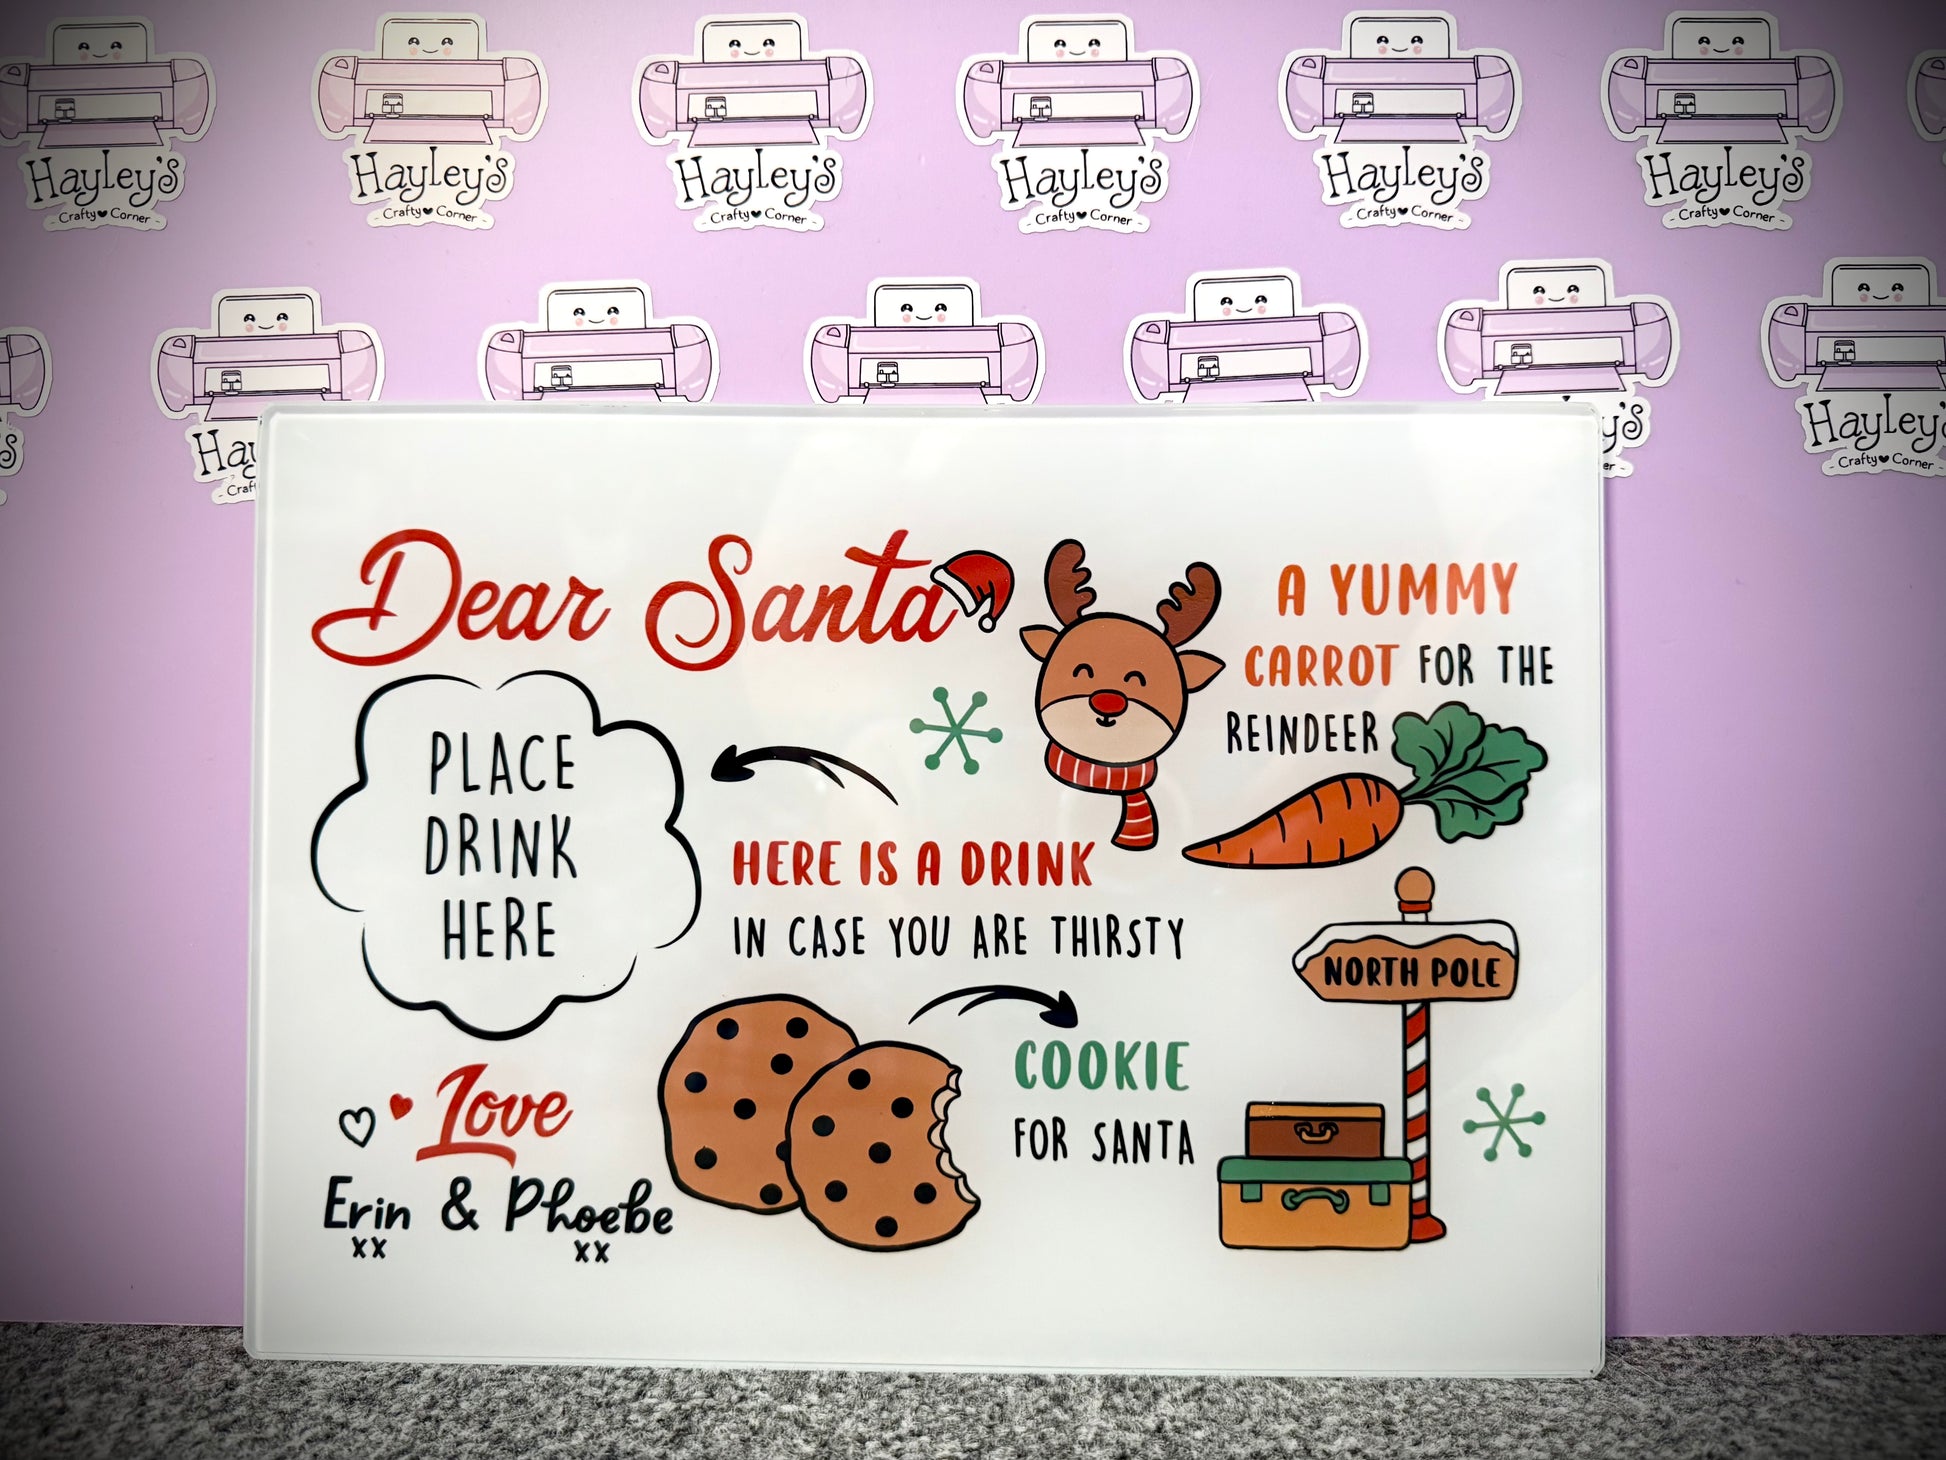 Hayley's
Crafty Corner
Hayley's
- Crafty Corner -
Hayley's
- Crafty Corner -
Hayley's
- Crafty Corner -
Hayley's
- Crafty Corner -
Hayley's
- Crafty Corner -
Hayley's
- Crafty Corner -
Dear Santa
A YUMMY
CARROT FOR THE
REINDEER
PLACE
DRINK
HERE
HERE IS A DRINK
IN CASE YOU ARE THIRSTY
NORTH POLE
COOKIE
FOR SANTA
Love
Erin & Phoebe
xx xx